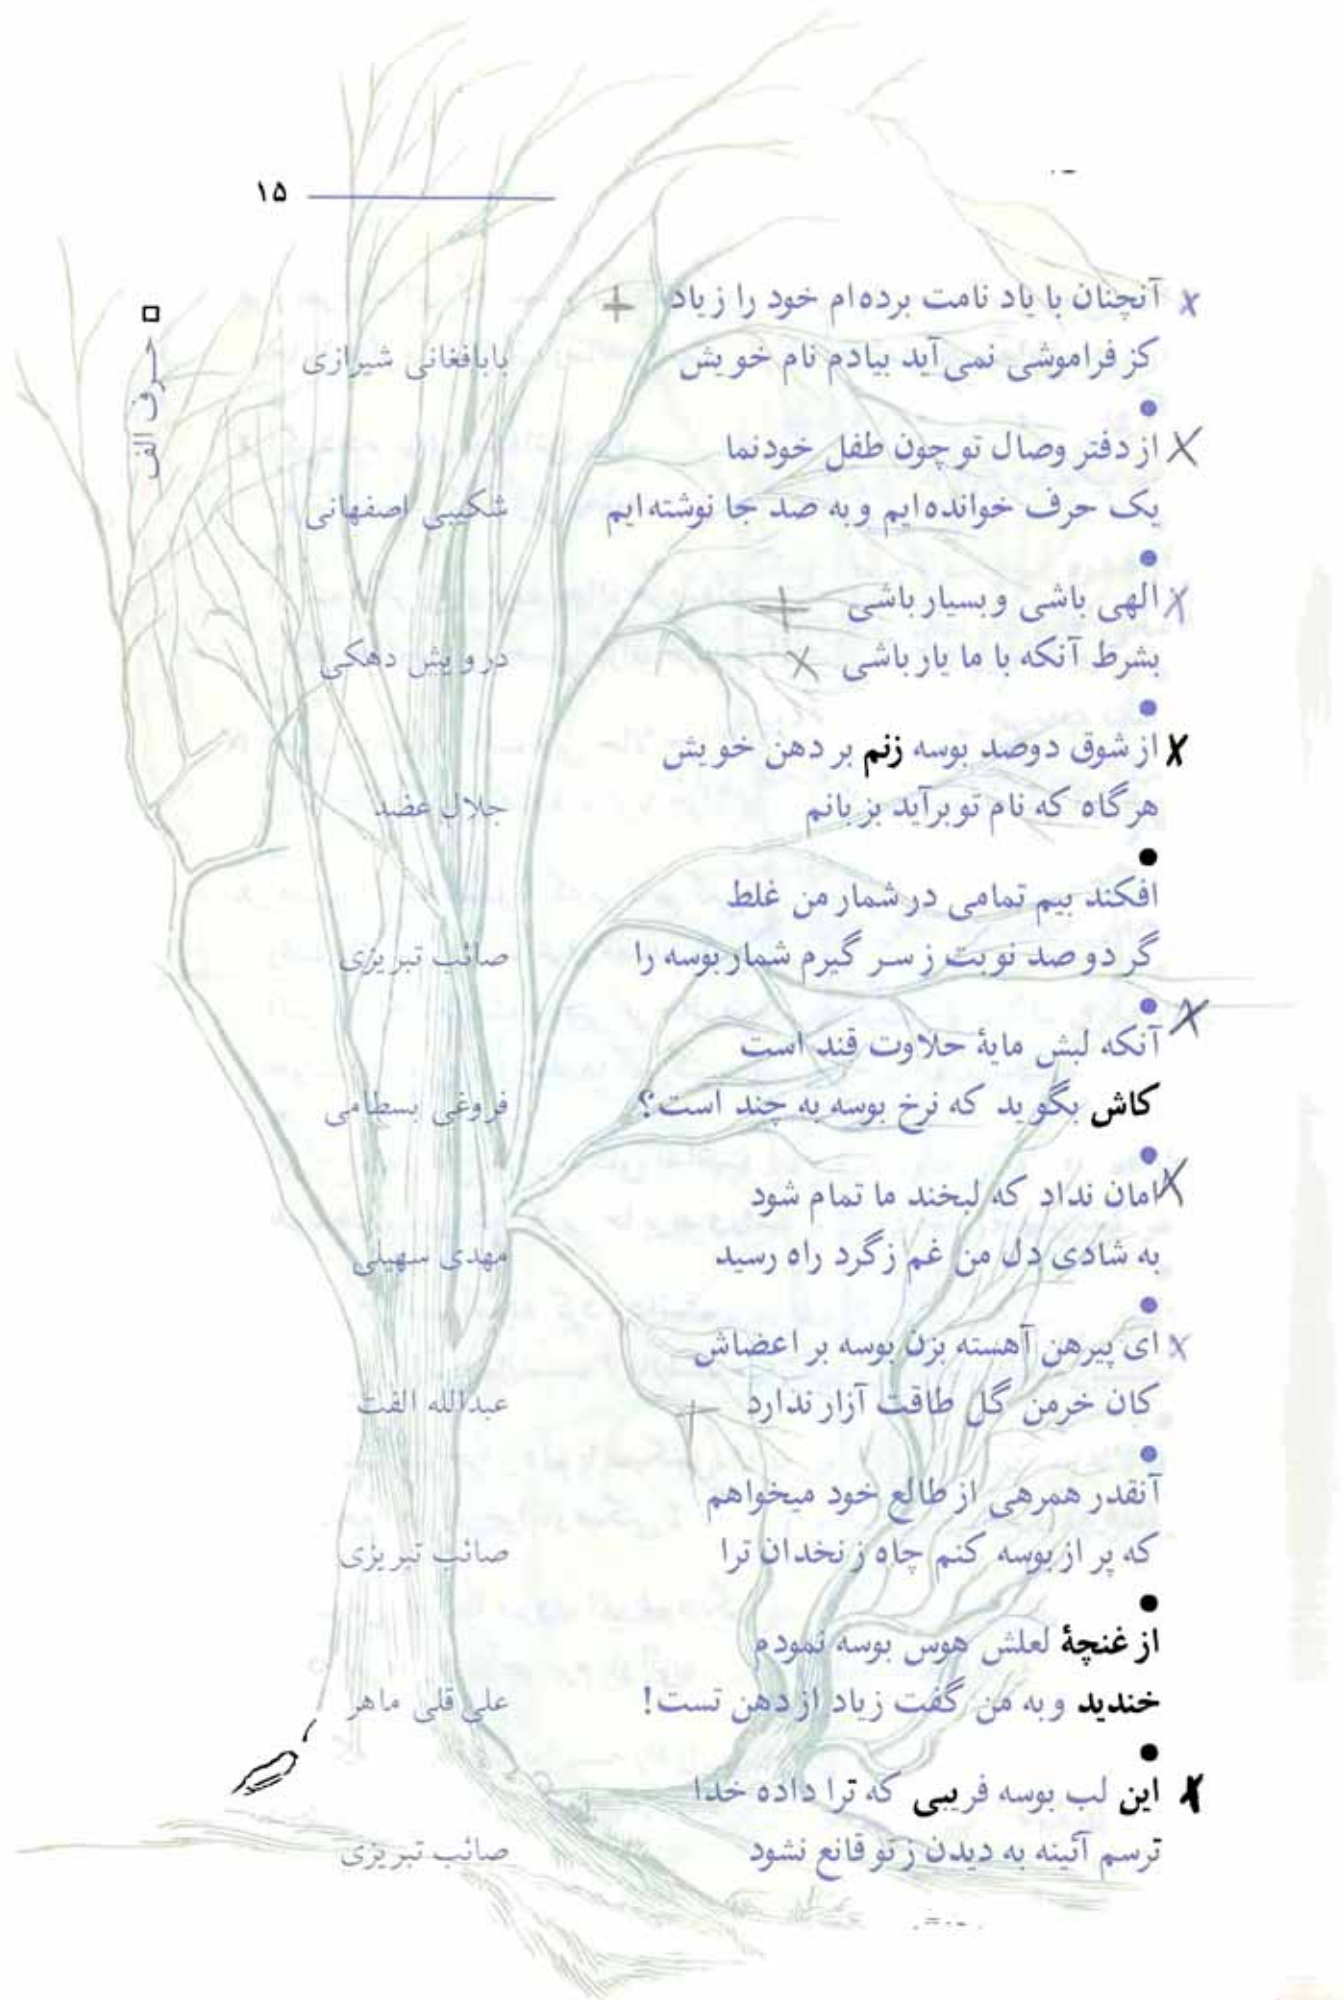 ۱۵
حرف الف
آنچنان با یاد نامت برده‌ام خود را زیاد
کز فراموشی نمی‌آید بیادم نام خویش
بابافغانی شیرازی
از دفتر وصال تو چون طفل خودنما
یک حرف خوانده‌ایم وبه صد جا نوشته‌ایم
شکیبی اصفهانی
الهی باشی وبسیار باشی
بشرط آنکه با ما یار باشی
درویش دهکی
از شوق دوصد بوسه زنم بر دهن خویش
هرگاه که نام تو برآید بزبانم
جلال عضد
افکند بیم تمامی در شمار من غلط
گر دو صد نوبت ز سر گیرم شمار بوسه را
صائب تبریزی
آنکه لبش مایهٔ حلاوت قند است
کاش بگوید که نرخ بوسه به چند است؟
فروغی بسطامی
امان نداد که لبخند ما تمام شود
به شادی دل من غم زگرد راه رسید
مهدی سهیلی
ای پیرهن آهسته بزن بوسه بر اعضاش
کان خرمن گل طاقت آزار ندارد
عبدالله الفت
آنقدر همرهی از طالع خود میخواهم
که پر از بوسه کنم چاه زنخدان ترا
صائب تبریزی
از غنچهٔ لعلش هوس بوسه نمودم
خندید وبه من گفت زیاد از دهن تست!
علی قلی ماهر
این لب بوسه فریبی که ترا داده خدا
ترسم آئینه به دیدن ز تو قانع نشود
صائب تبریزی